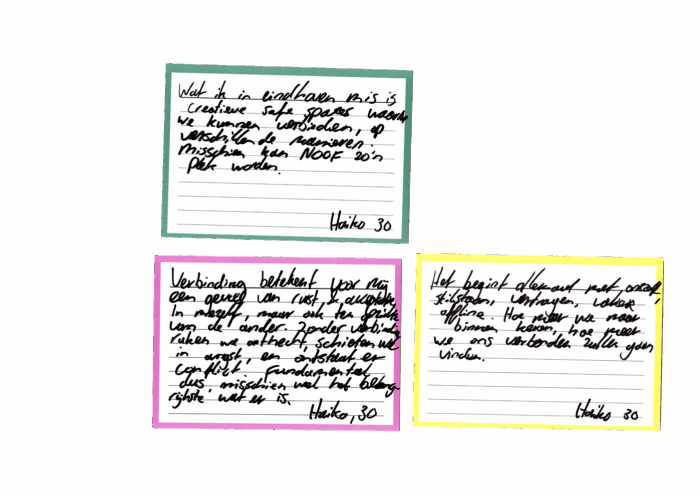 Wat ik in eindhoven mis is
creatieve safe spaces waarin
we kunnen verbinden, op
verschillende manieren.
misschien kan NOOF zo'n
plek worden.
Haiko 30
Verbinding betekent voor mij
een gevoel van rust, & acceptatie,
In mezelf, maar ook ten opzichte
van de ander. Zonder verbinding
raken we onthecht, schieten we
in angst, en ontstaat er
conflict. Fundamenteel
dus, misschien wel het belang
rijkste wat er is.
Haiko, 30
Het begint allemaal met onszelf,
stilstaan, vertragen, vaker
offline. Hoe meer we naar
binnen keren, hoe meer
we ons verbonden zullen gaan
vinden.
Haiko 30